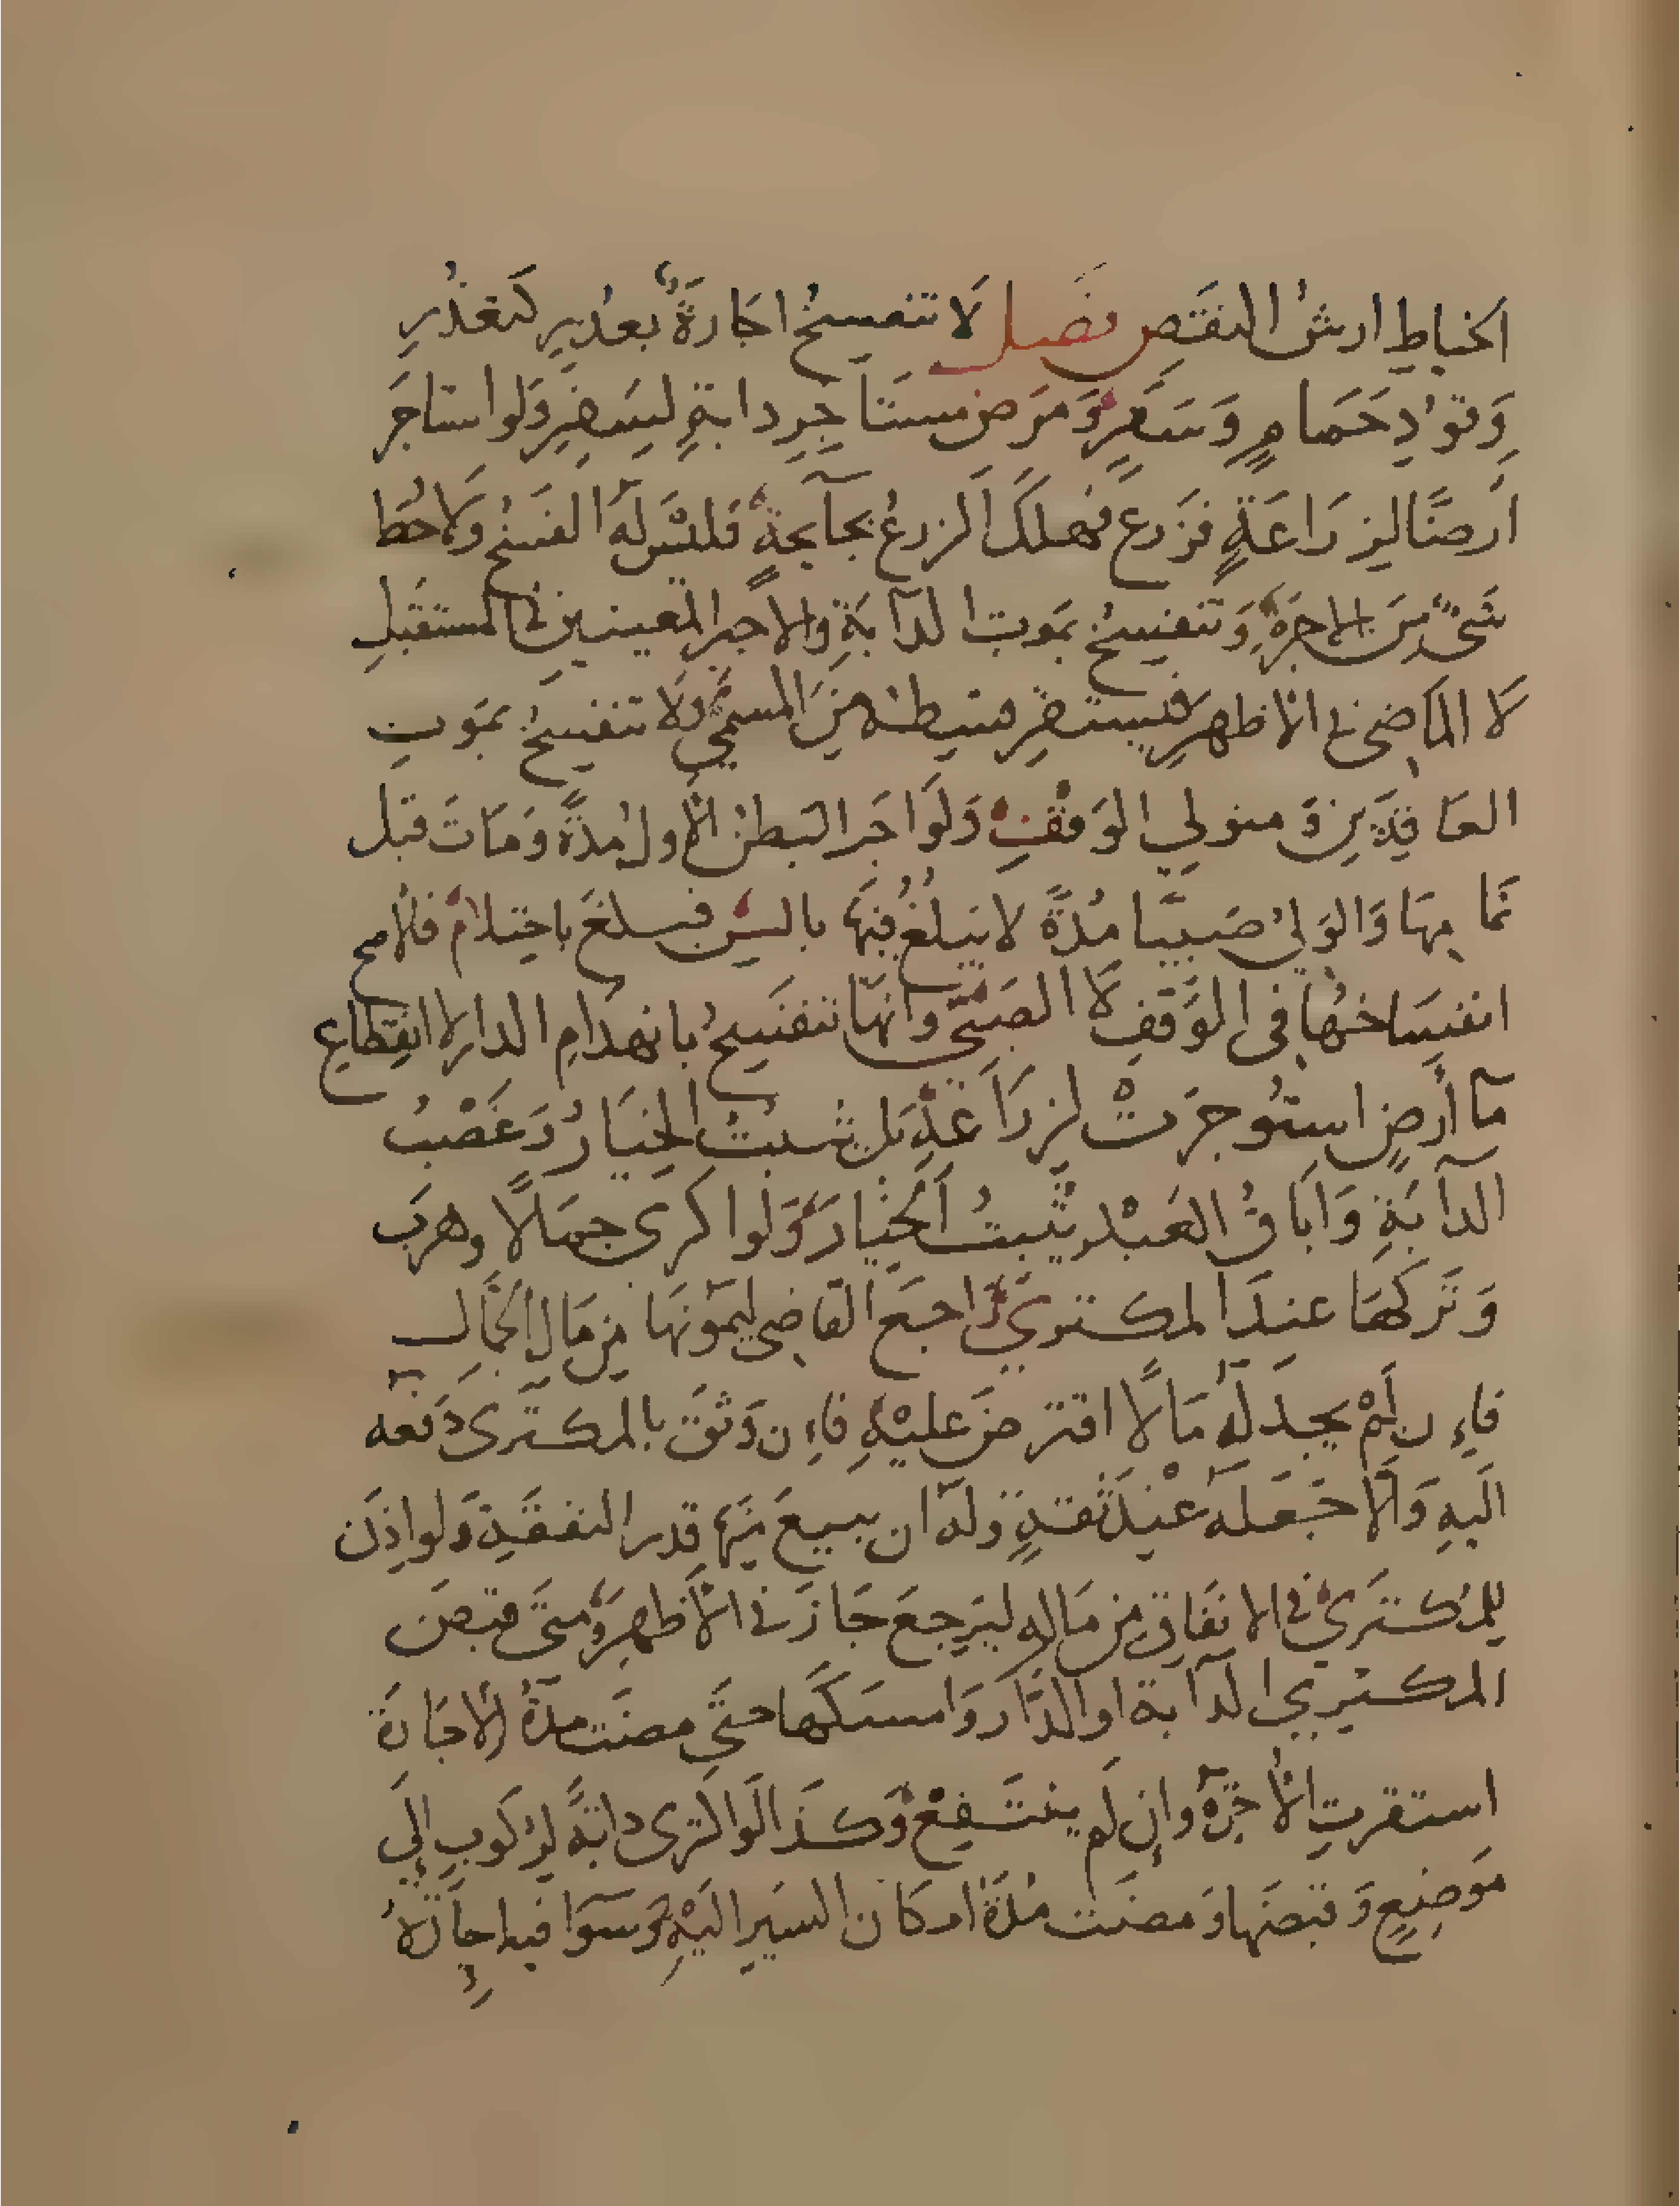 الخياط ارش النقص فصل لَا تنفسخُ اجَارةٌ بعذرٍ كتعذُرِ
وَقوُدِ حَمَامٍ وَسَفَرٍ وَمَرَض مستَاجِرِ دابةٍ لسَفرٍ وَلو استاجَرَ
اَرضًا لزرَاعَةٍ فزَرع فهلكَ الزرعُ بجآيحةٍ فليسَ لهُ الفسَخُ ولَا حُط
شَئٌ منَ الاجرَةِ وَتنفسِخُ بمَوت الدآبَةِ والاجير المعينينِ في المستقبَلِ
لَا المَاضى في الاظهرِ فيستقرِ قسِطهُ مِنَ المسمَّي ولَا تنفسِخُ بمَوتِ
العَاقِدَينِ وَ متولي الوَقفِ وَلوَ اجَر البَطنُ الأولُ مدَّةً وَمَاتَ قبل
تمَامِهَا وَالوَلىُ صَبيًا مُدةً لا يَبلغُ فِيهَا بالسِنِ فبلغَ باحِتلامٍ فَالاصح
انفسَاخهُا فى الوَقفِ لَا الصَبيّ وَانهَا تنفَسِخُ بانهدَامِ الدارِ لا انقِطاعِ
مآ أرضٍ استؤجرَتْ لزرَاعَةٍ بَل يثبتُ الخِيَارُ وَغَصْبُ
الدآبَةِ وَابَاقُ العَبْدِ يثبِتُ الخيَارَ وَلو اكرى جمَالًا وهربَ
وَترَكهَا عندَ المكتري رَاجَعَ القاضِى ليمَونهَا مِن مَال الجمَّال
فاءِن لَمْ يجدَ لهُ مَالًا اقترضَ عليْهِ فاءِن وَثقَ بالمكترى دَفعه
اليهِ وَالَّا جَعَلهُ عنْدَ ثقةٍ وَلهُ ان يبيعَ مِنهَا قدر النفقةِ وَلو اذِنَ
للمُكترَيْ في الانفَاق مِن مَالهِ ليرَجعَ جَازَ في الاظهرِ وَمتَى قبَضَ
المكتري الدآبة او الدَّارَ وَامسَكهَا حتَّي مضَت مدَةُ الاجَارَة
استقرتِ الأجرَةُ وإن لَم ينتَفِعْ وَكذَا لوَ اكترى دابَةً لرُكوُبٍ إلَي
مَوضِعٍ وَقبَضهَا وَمضَت مُدَةُ امكَان السَيرِ اليْهِ وَسوَا فيه إجَارةُ